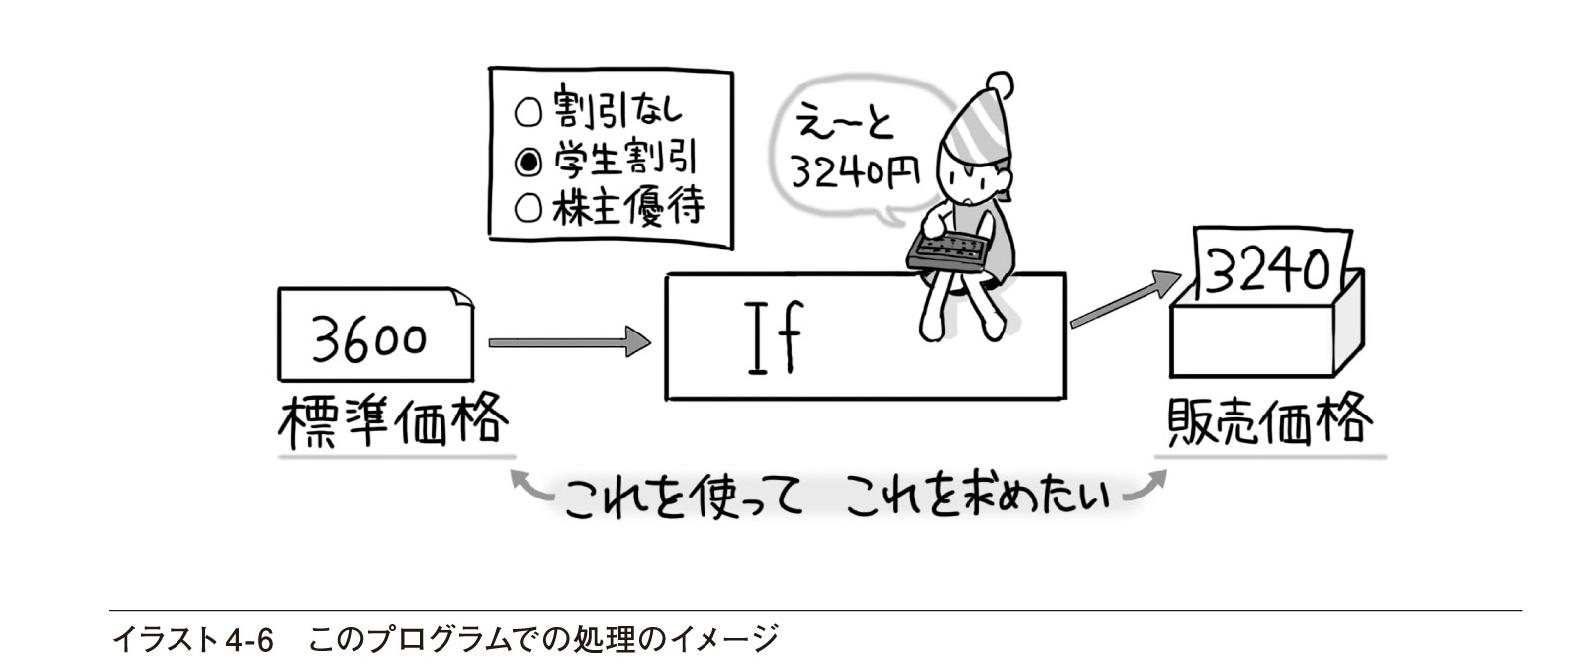 割引なし
学生割引
株主優待
え〜と
3240円
3600
標準価格
If
3240
販売価格
これを使って これを求めたい
イラスト4-6 このプログラムでの処理のイメージ